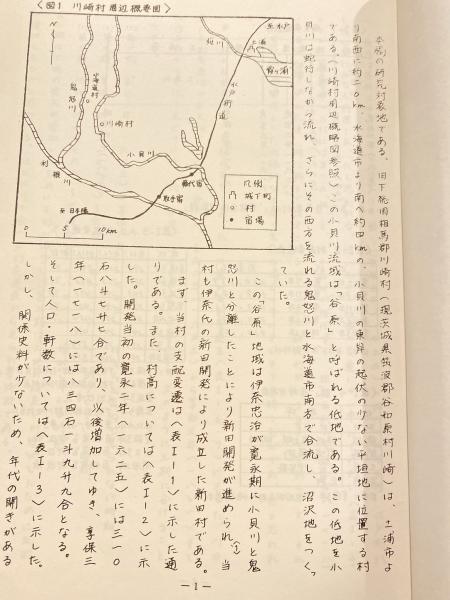 〈図1 川崎村周辺概要図〉
至水戸
土浦
霞ヶ浦
桜川
水戸街道
水海道村
鬼怒川
川崎村
小貝川
利根川
藤代宿
取手宿
至日本橋
凡例
城下町
村
宿場
0 5 10km
本例の研究対象地である、旧下総国相馬郡川崎村(現茨城県筑波郡谷和原村川崎)は、土浦市よ
り南西に約二〇km、水海道市より南へ約四kmの、小貝川の東岸の起伏の少ない平坦地に位置する村
である。〈川崎村周辺概略図参照〉この小貝川流域は「谷原」と呼ばれる低地である。この低地を小
貝川は蛇行しながら流れ、さらにその西方を流れる鬼怒川と水海道市南方で合流し、沼沢地をつくっ
ていた。
この「谷原」地域は伊奈忠治が寛永期に小貝川と鬼
怒川と分離したことにより新田開発が進められ(1)、当
村も伊奈氏の新田開発により成立した新田村である。
まず、当村の支配変遷は〈表Ⅰ-1〉に示した通
りである。また、村高については〈表Ⅰ-2〉に示
した。開発当初の寛永二年〈一六二五〉には三一〇
石八斗七升七合であり、以後増加してゆき、享保三
年〈一七一八〉には八三四石一斗九升九合となる。
そして人口・軒数については〈表Ⅰ-3〉に示した。
しかし、関係史料が少ないため、年代の開きがある
-1-